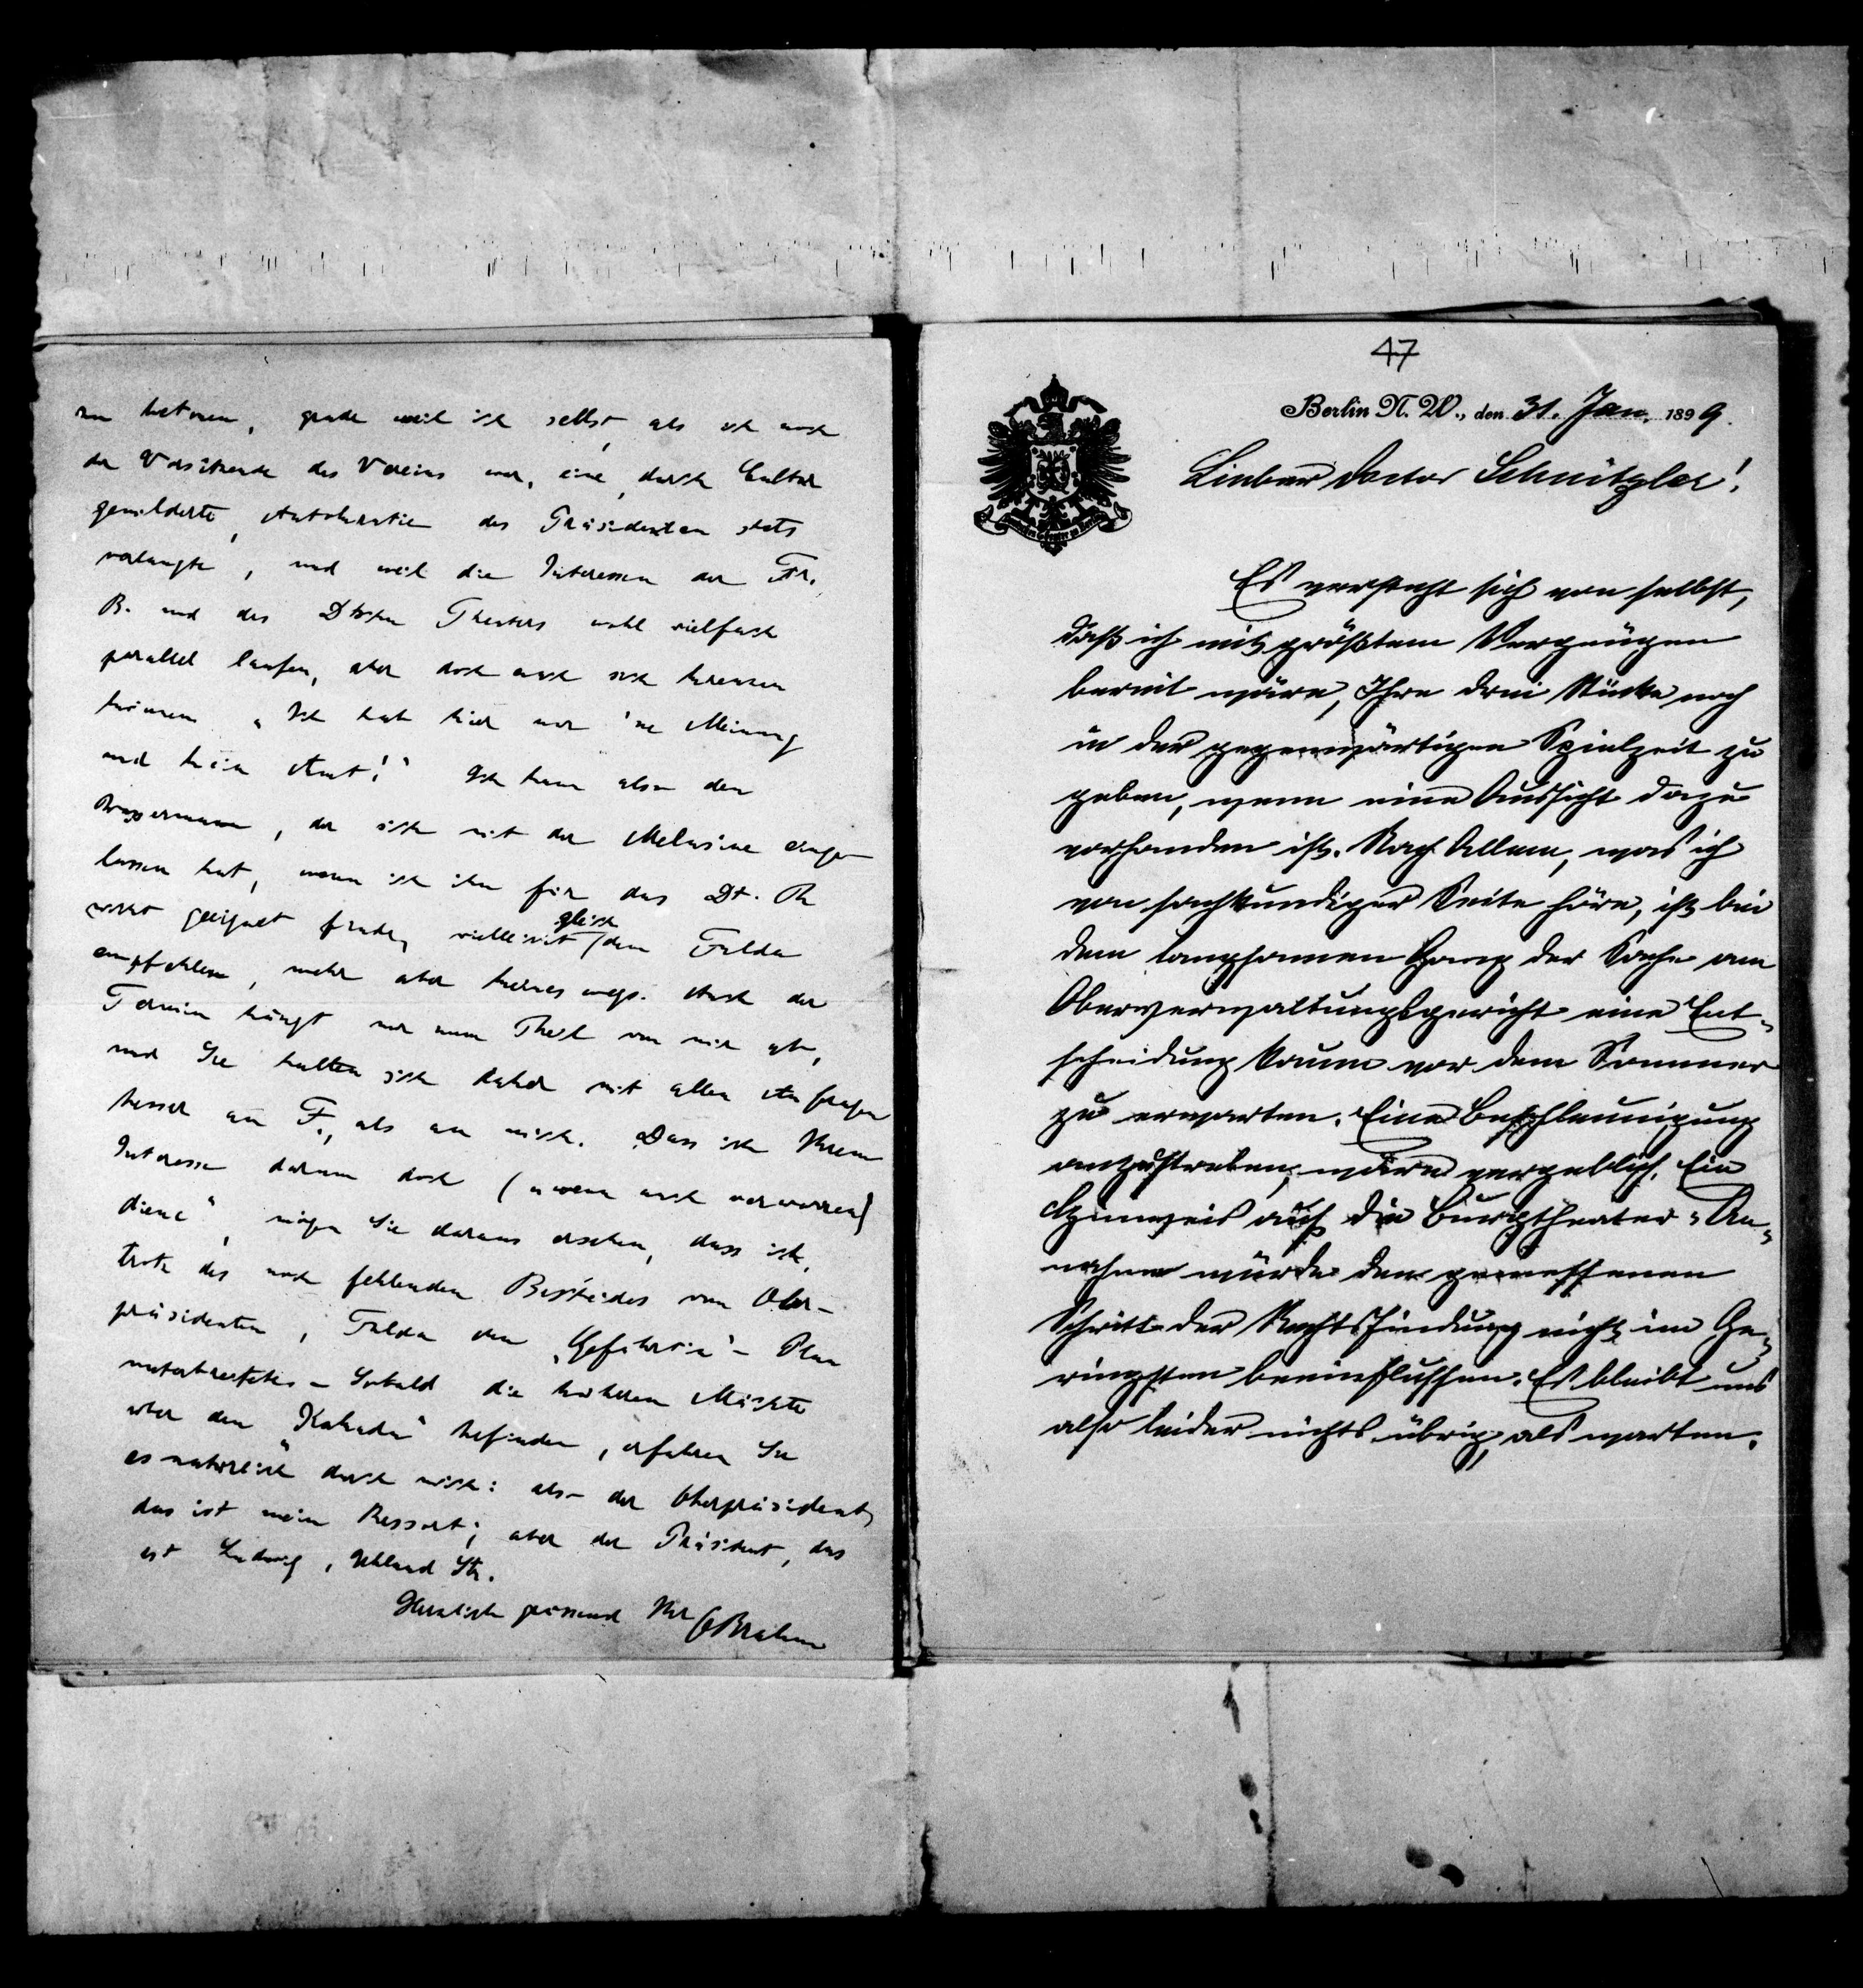 zu betonen, grade weil ich selbst, als ich noch
der Vorsitzende des Vereins war, eine, durch Cultur
gemilderte, Autokratie des Präsidenten stets
verlangte, und weil die Interessen der Fr.
B. und des Dtschen Theaters wohl vielfach
parallel laufen, aber doch auch sich kreuzen
können. „Ich hab hier nur 'ne Meinung
und kein Amt!“ Ich kann also den
Wassermann, der sich mit der Melusine einge-
lassen hat, wenn ich ihn für das Dt. Th
nicht geeignet finde, vielleicht gleich dem Fulda
empfehlen, mehr aber keineswegs. Auch der
Termin hängt nur zum Theil von mir ab,
und Sie halten sich daher mit allen Anfragen
besser an F., als an mich. Dass ich Ihrem
Interesse darum doch („wenn auch verworren)
diene“, mögen Sie daraus ersehen, dass ich,
trotz des noch fehlenden Bescheides vom Ober-
präsidenten, Fulda den „Gefährtin“-Plan
unterbreitete. Sobald die höheren Mächte
über den „Kakadu“ befinden, erfahren Sie
es natürlich durch mich: also der Oberpräsident,
das ist mein Ressort; aber der Präsident, das
ist Ludwig, Uhland Str.
Herzlich grüssend Ihr OBrahm
47
Berlin N. W., den 31. Jan. 1899.
Lieber Doctor Schnitzler!
Es versteht sich von selbst,
daß ich mit größtem Vergnügen
bereit wäre, Ihre drei Stücke noch
in der gegenwärtigen Spielzeit zu
geben, wenn eine Aussicht dazu
vorhanden ist. Nach Allem, was ich
von sachkundiger Seite höre, ist bei
dem langsamen Gang der Sache am
Oberverwaltungsgericht eine Ent-
scheidung kaum vor dem Sommer
zu erwarten. Eine Beschleunigung
anzustreben, wäre vergeblich. Ein
Hinweis auf die Burgtheater-An-
nahme würde den gemessenen
Schritt der Rechtsfindung nicht im Ge-
ringsten beeinflussen. Es bleibt uns
also leider nichts übrig, als warten.